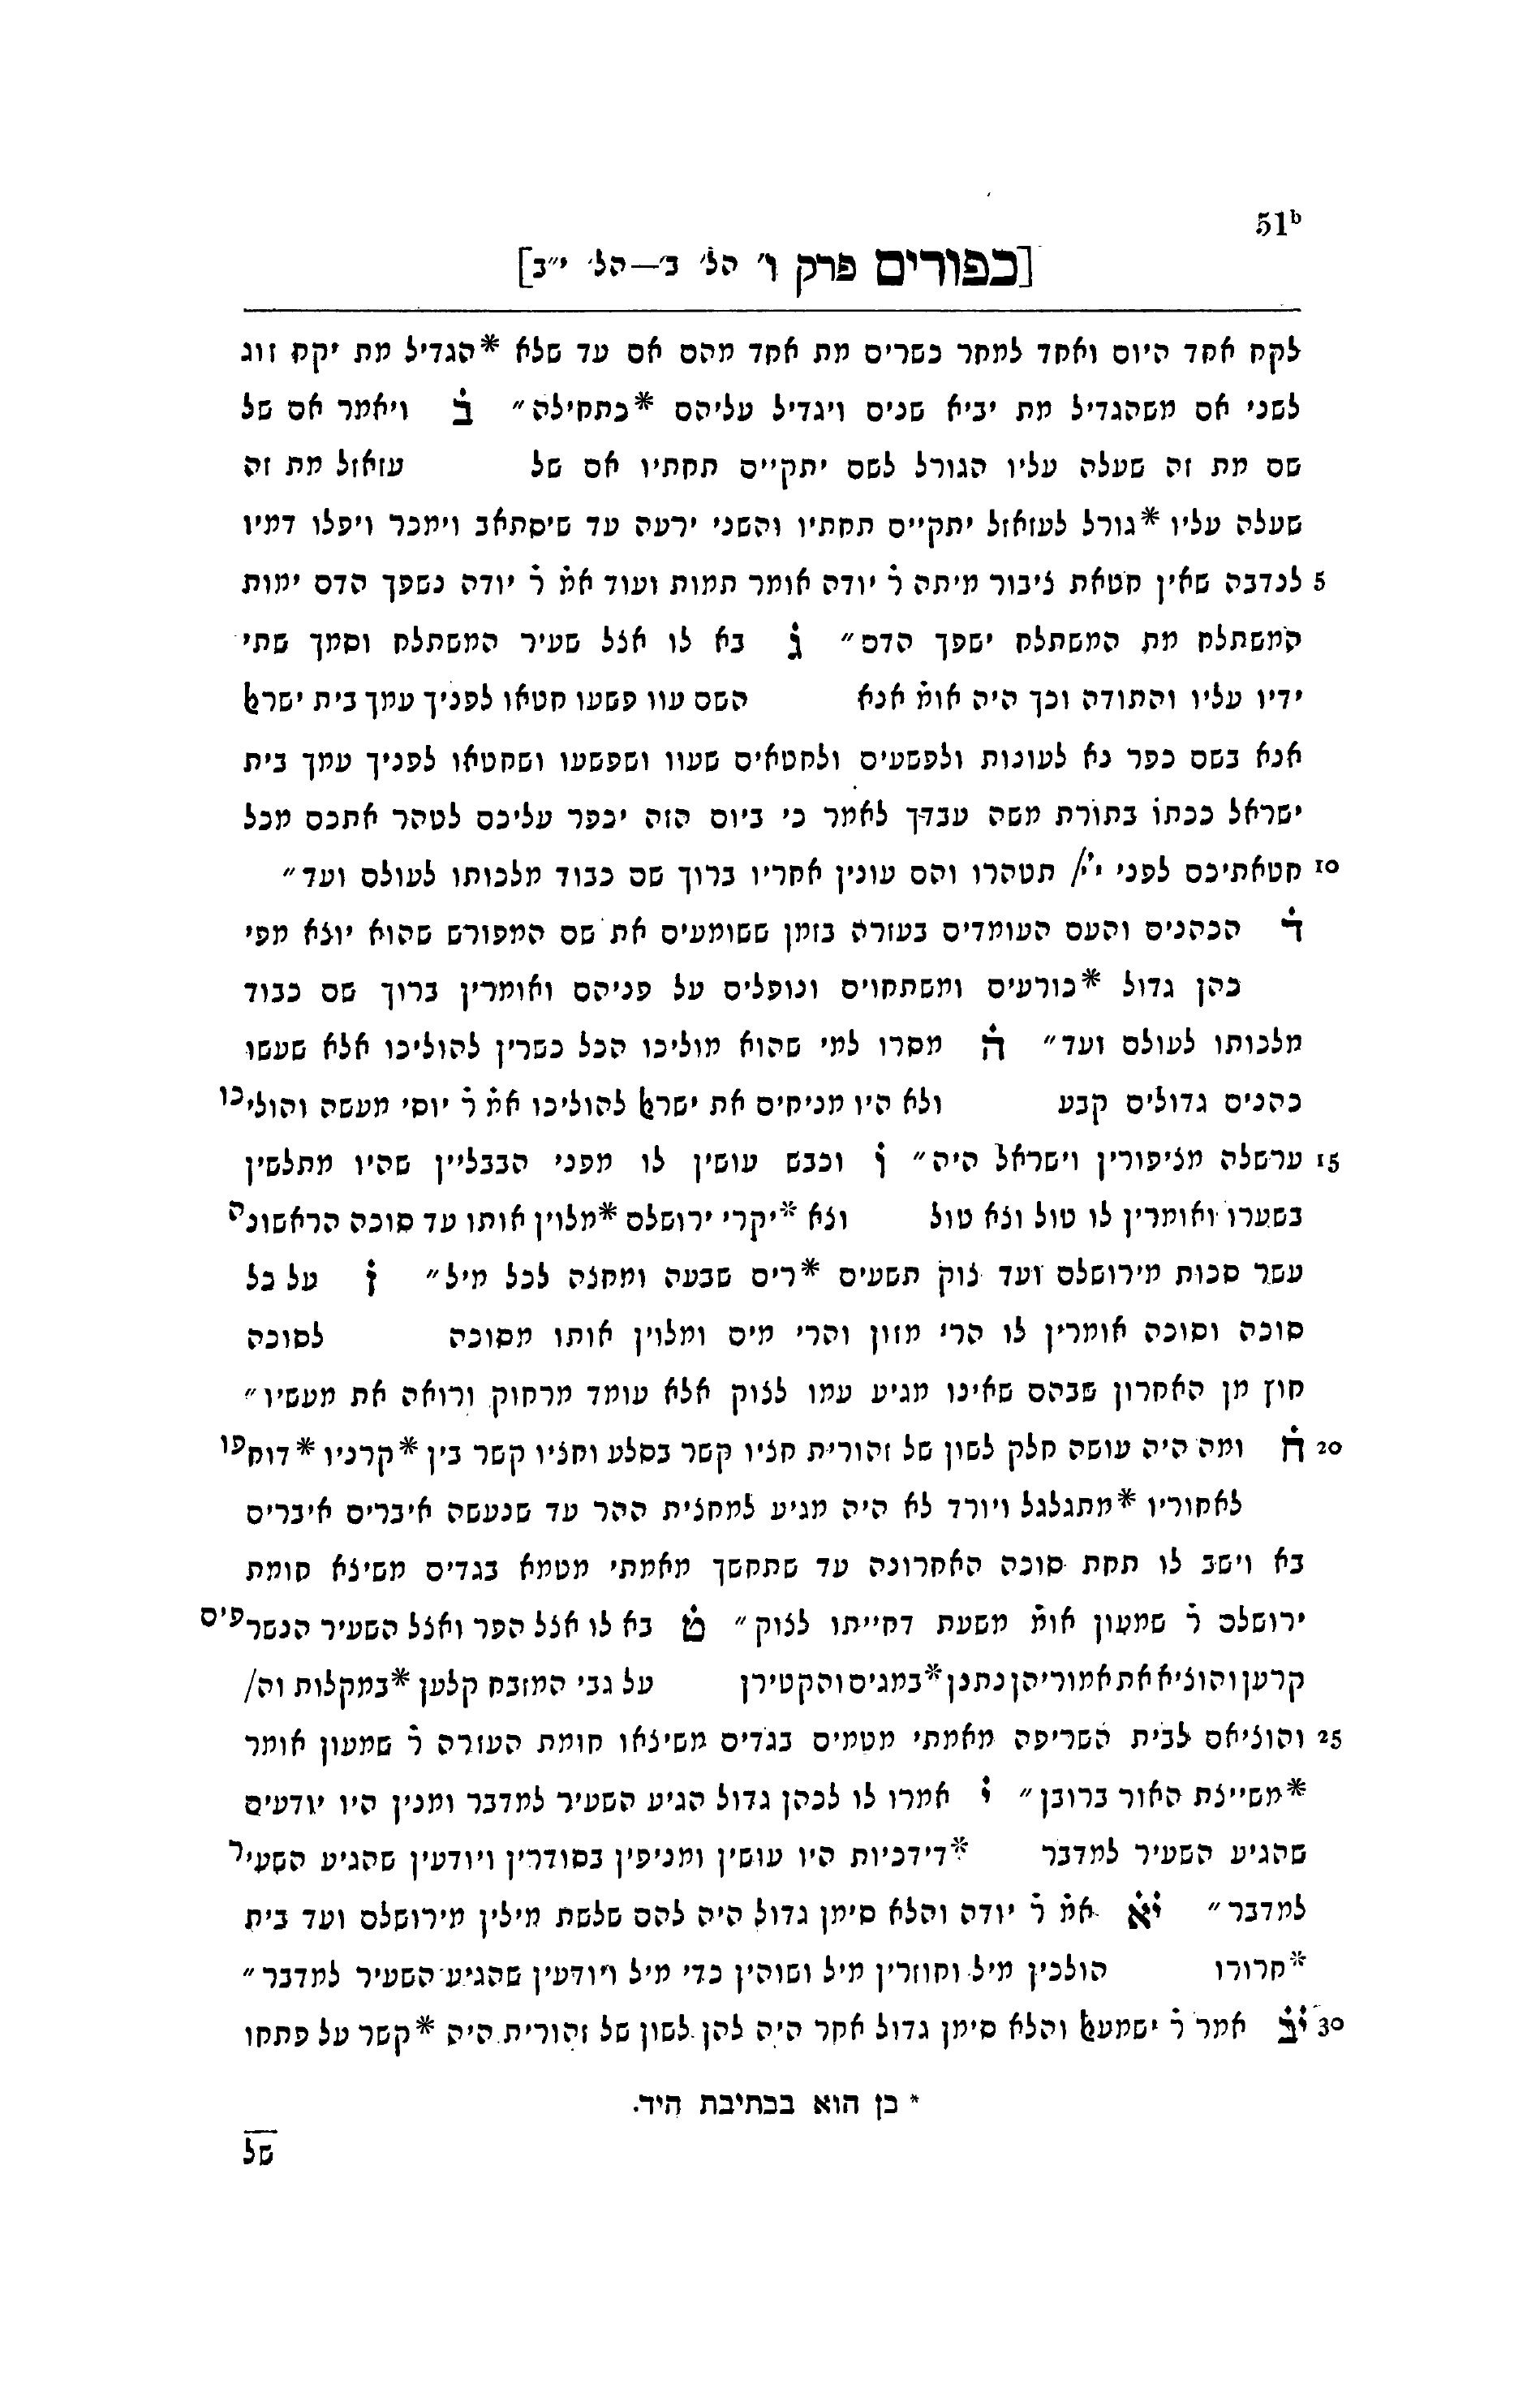 51b
[כפורים פרק ו׳ הל׳ ב׳—הל׳ י״ב]
לקח אחד היום ואחד למחר כשרים מת אחד מהם אם עד שלא *הגדיל מת יקח זוג
לשני אם משהגדיל מת יביא שנים ויגדיל עליהם *כתחילה״ ב̇ ויאמר אם של
שם מת זה שעלה עליו הגורל לשם יתקיים תחתיו אם של עזאזל מת זה
שעלה עליו *גורל לעזאזל יתקיים תחתיו והשני ירעה עד שיסתאב וימכר ויפלו דמיו
5 לנדבה שאין חטאת ציבור מיתה ר̇ יודה אומר תמות ועוד אמ̇ ר̇ יודה נשפך הדם ימות
המשתלח מת המשתלח ישפך הדם״ ג̇ בא לו אצל שעיר המשתלח וסמך שתי
ידיו עליו והתודה וכך היה אומ̇ אנא השם עוו פשעו חטאו לפניך עמך בית ישרﭏ
אנא בשם כפר נא לעונות ולפשעים ולחטאים שעוו ושפשעו ושחטאו לפניך עמך בית
ישראל ככתו̇ בתורת משה עבדך לאמר כי ביום הזה יכפר עליכם לטהר אתכם מכל
10 חטאתיכם לפני י̇י̇/ תטהרו והם עונין אחריו ברוך שם כבוד מלכותו לעולם ועד״
ד̇ הכהנים והעם העומדים בעזרה בזמן ששומעים את שם המפורש שהוא יוצא מפי
כהן גדול *כורעים ומשתחוים ונופלים על פניהם ואומרין ברוך שם כבוד
מלכותו לעולם ועד״ ה̇ מסרו למי שהוא מוליכו הכל כשרין להוליכו אלא שעשו
כהנים גדולים קבע ולא היו מניחים את ישרﭏ להוליכו אמ̇ ר̇ יוסי מעשה והוליכו
15 ערשלה מציפורין וישראל היה״ ו̇ וכבש עושין לו מפני הבבליין שהיו מתלשין
בשערו ואומרין לו טול וצא טול וצא *יקרי ירושלם *מלוין אותו עד סוכה הראשונה
עשר סכות מירושלם ועד צוק תשעים *רים שבעה ומחצה לכל מיל״ ז̇ על כל
סוכה וסוכה אומרין לו הרי מזון והרי מים ומלוין אותו מסוכה לסוכה
חוץ מן האחרון שבהם שאינו מגיע עמו לצוק אלא עומד מרחוק ורואה את מעשיו״
20 ח̇ ומה היה עושה חלק לשון של זהורית חציו קשר בסלע וחציו קשר בין *קרניו *דוחפו
לאחוריו *מתגלגל ויורד לא היה מגיע למחצית ההר עד שנעשה איברים איברים
בא וישב לו תחת סוכה האחרונה עד שתחשך מאמתי מטמא בגדים משיצא חומת
ירושלם ר̇ שמעון אומ̇ משעת דחייתו לצוק״ ט̇ בא לו אצל הפר ואצל השעיר הנשרפים
קרען והוציא את אמוריהן נתנן *במגיס והקטירן על גבי המזבח קלען *במקלות וה/
25 והוציאם לבית השריפה מאמתי מטמים בגדים משיצאו חומת העזרה ר̇ שמעון אומר
*משייצת האור ברובן״ י̇ אמרו לו לכהן גדול הגיע השעיר למדבר ומנין היו יודעים
שהגיע השעיר למדבר *דידכיות היו עושין ומניפין בסודרין ויודעין שהגיע השעיר
למדבר״ י̇א̇ אמ̇ ר̇ יודה והלא סימן גדול היה להם שלשת מילין מירושלם ועד בית
*חרורו הולכין מיל וחוזרין מיל ושוהין כדי מיל ויודעין שהגיע השעיר למדבר״
30 י̇ב̇ אמר ר̇ ישמעﭏ והלא סימן גדול אחר היה להן לשון של זהורית היה *קשר על פתחו
* כן הוא בכתיבת היד.
של